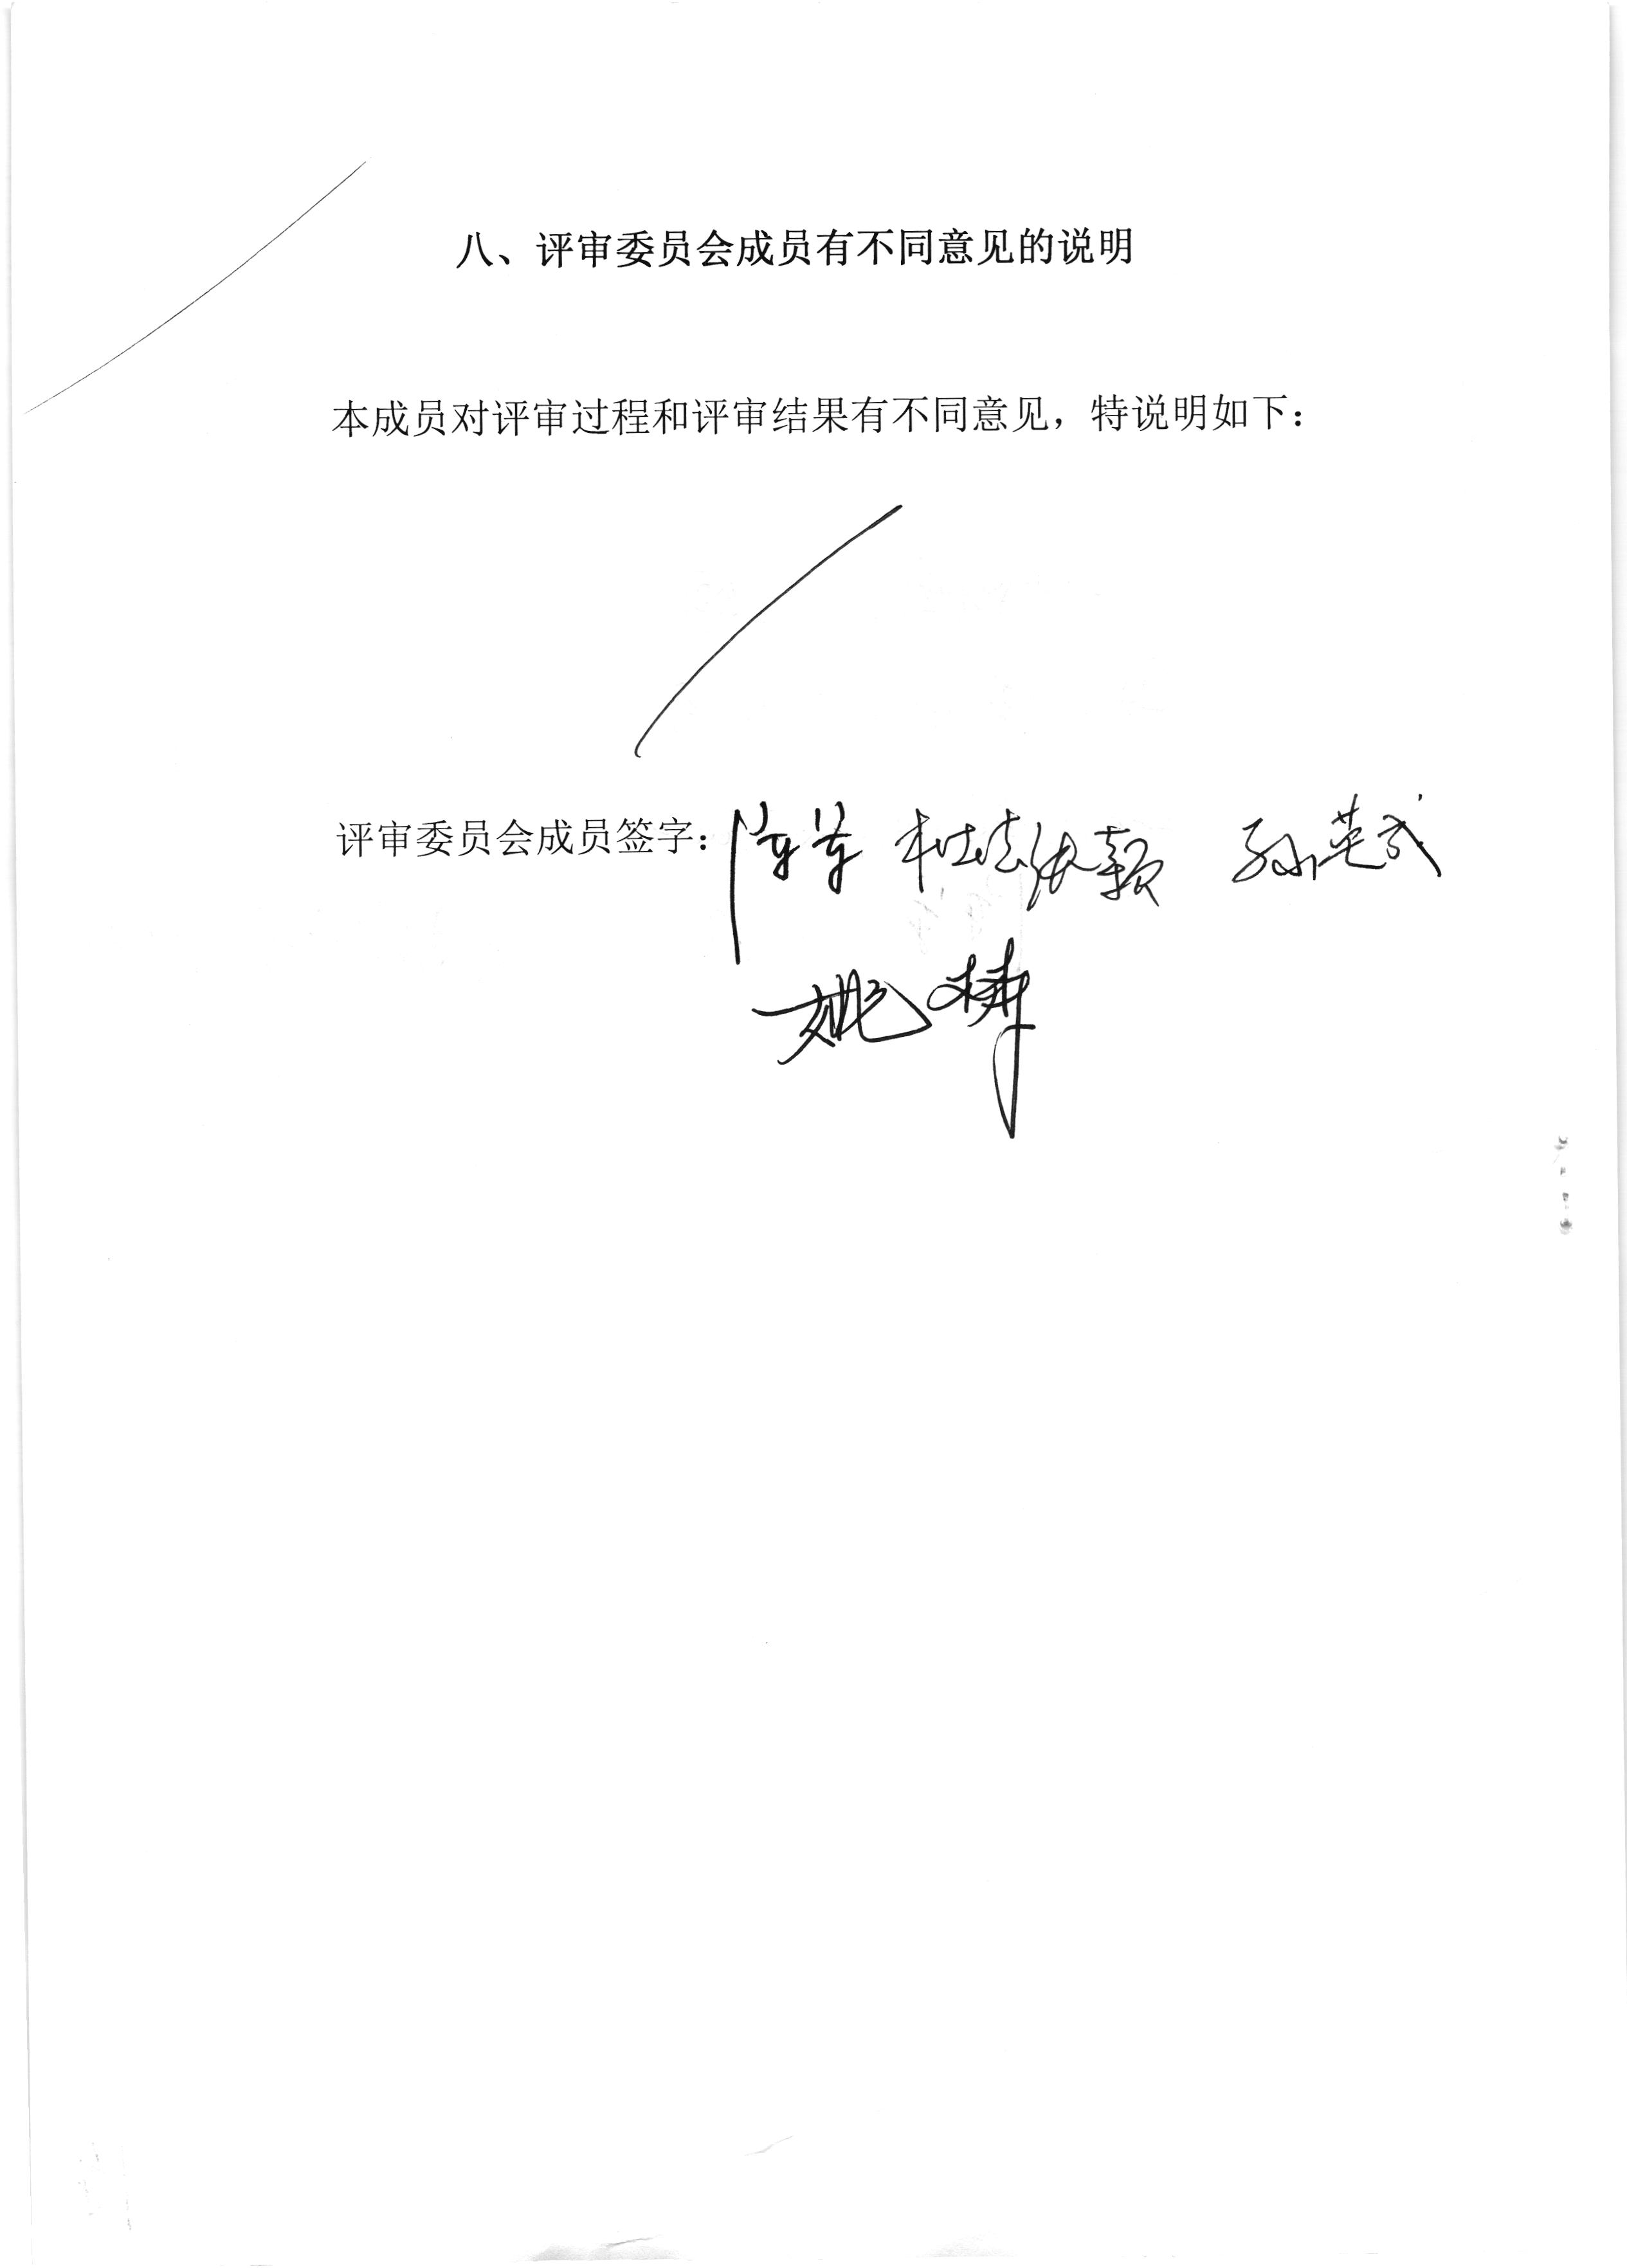 八、评审委员会成员有不同意见的说明
本成员对评审过程和评审结果有不同意见，特说明如下：
评审委员会成员签字：张颖 孙英武
姚